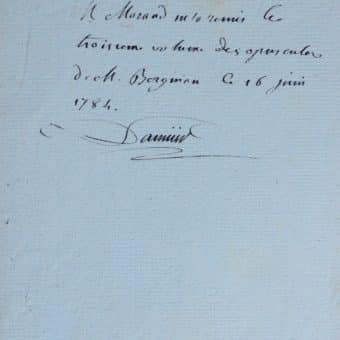 M Morand m'a remis le
troisieme volume des opuscules
de M. Bergman Ce 16 juin
1784.